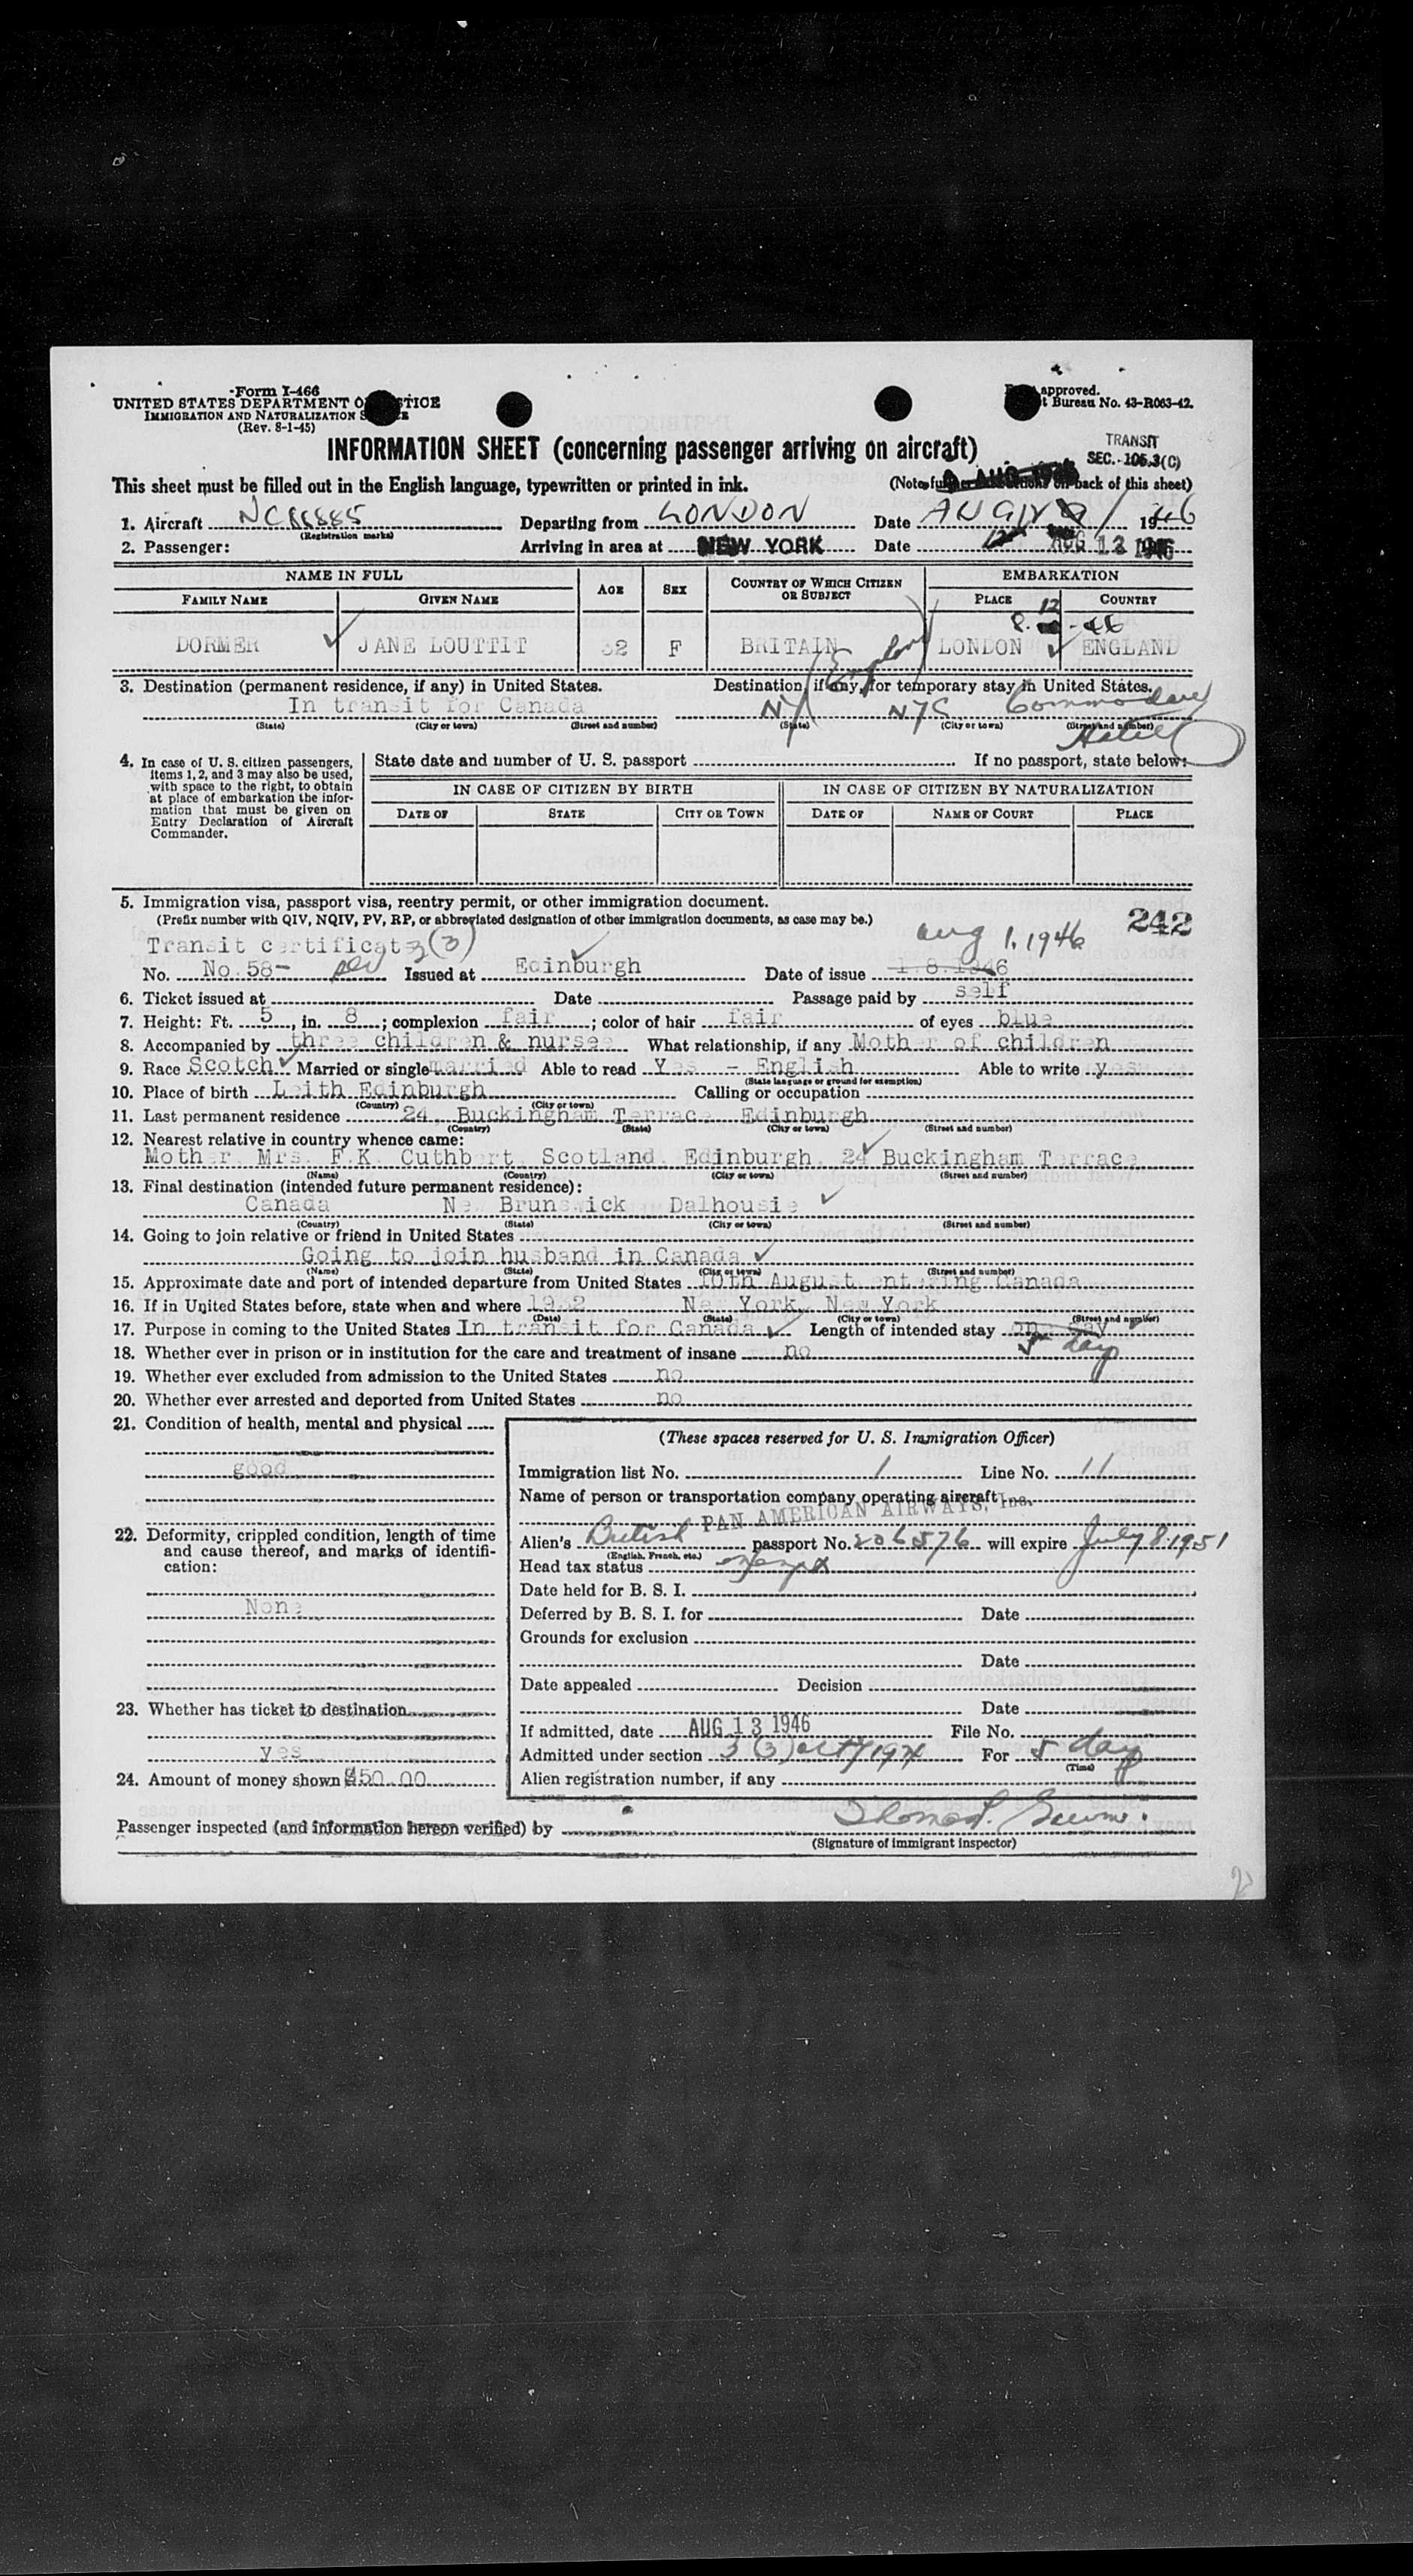 Form I-466
UNITED STATES DEPARTMENT OF JUSTICE
IMMIGRATION AND NATURALIZATION S
(Rev. 8-1-45)
approved.
t Bureau No. 43-R063-42.
INFORMATION SHEET (concerning passenger arriving on aircraft)
TRANSIT
SEC. 105.3(C)
This sheet must be filled out in the English language, typewritten or printed in ink.
(Note further instructions on back of this sheet)
1. Aircraft NC88885 Departing from LONDON Date AUG 12 1946
(Registration marks)
2. Passenger: Arriving in area at NEW YORK Date AUG 13 1946
NAME IN FULL AGE SEX COUNTRY OF WHICH CITIZEN OR SUBJECT EMBARKATION
FAMILY NAME GIVEN NAME PLACE COUNTRY
8. 12 - 46
DORMER JANE LOUTTIT 32 F BRITAIN LONDON ENGLAND
3. Destination (permanent residence, if any) in United States. Destination, if any, for temporary stay in United States.
In transit for Canada NY NYC Commodore
(State) (City or town) (Street and number) (State) (City or town) (Street and number)
Hotel
4. In case of U. S. citizen passengers, items 1, 2, and 3 may also be used, with space to the right, to obtain at place of embarkation the information that must be given on Entry Declaration of Aircraft Commander.
State date and number of U. S. passport If no passport, state below:
IN CASE OF CITIZEN BY BIRTH IN CASE OF CITIZEN BY NATURALIZATION
DATE OF STATE CITY OR TOWN DATE OF NAME OF COURT PLACE
5. Immigration visa, passport visa, reentry permit, or other immigration document.
(Prefix number with QIV, NQIV, PV, RP, or abbreviated designation of other immigration documents, as case may be.)
242
Transit certificate 3(3) Aug 1. 1946
No. No. 58- Issued at Edinburgh Date of issue 1.8.1946
6. Ticket issued at Date Passage paid by self
7. Height: Ft. 5, in. 8; complexion fair; color of hair fair of eyes blue
8. Accompanied by three children & nurse What relationship, if any Mother of children
9. Race Scotch Married or single married Able to read Yes - English Able to write yes
(State language or ground for exemption)
10. Place of birth Leith Edinburgh Calling or occupation
(Country) (City or town)
11. Last permanent residence 24, Buckingham Terrace, Edinburgh
(Country) (State) (City or town) (Street and number)
12. Nearest relative in country whence came:
Mother Mrs. F.K. Cuthbert Scotland Edinburgh 24 Buckingham Terrace
(Name) (Country) (City or town) (Street and number)
13. Final destination (intended future permanent residence):
Canada New Brunswick Dalhousie
(Country) (State) (City or town) (Street and number)
14. Going to join relative or friend in United States
Going to join husband in Canada
(Name) (State) (City or town) (Street and number)
15. Approximate date and port of intended departure from United States 10th August entering Canada
16. If in United States before, state when and where 1932 New York, New York
(Date) (State) (City or town) (Street and number)
17. Purpose in coming to the United States In transit for Canada Length of intended stay one day
5 day
18. Whether ever in prison or in institution for the care and treatment of insane no
19. Whether ever excluded from admission to the United States no
20. Whether ever arrested and deported from United States no
21. Condition of health, mental and physical
good
22. Deformity, crippled condition, length of time and cause thereof, and marks of identification:
None
23. Whether has ticket to destination
yes
24. Amount of money shown $50.00
(These spaces reserved for U. S. Immigration Officer)
Immigration list No. 1 Line No. 11
Name of person or transportation company operating aircraft
PAN AMERICAN AIRWAYS, Inc.
Alien's British passport No. 206576 will expire July 8 1951
(English, French, etc.)
Head tax status exempt
Date held for B. S. I.
Deferred by B. S. I. for Date
Grounds for exclusion
Date
Date appealed Decision
Date
If admitted, date AUG 13 1946 File No.
Admitted under section 3 (3) act of 1924 For 5 day
(Time)
Alien registration number, if any
Passenger inspected (and information hereon verified) by
(Signature of immigrant inspector)